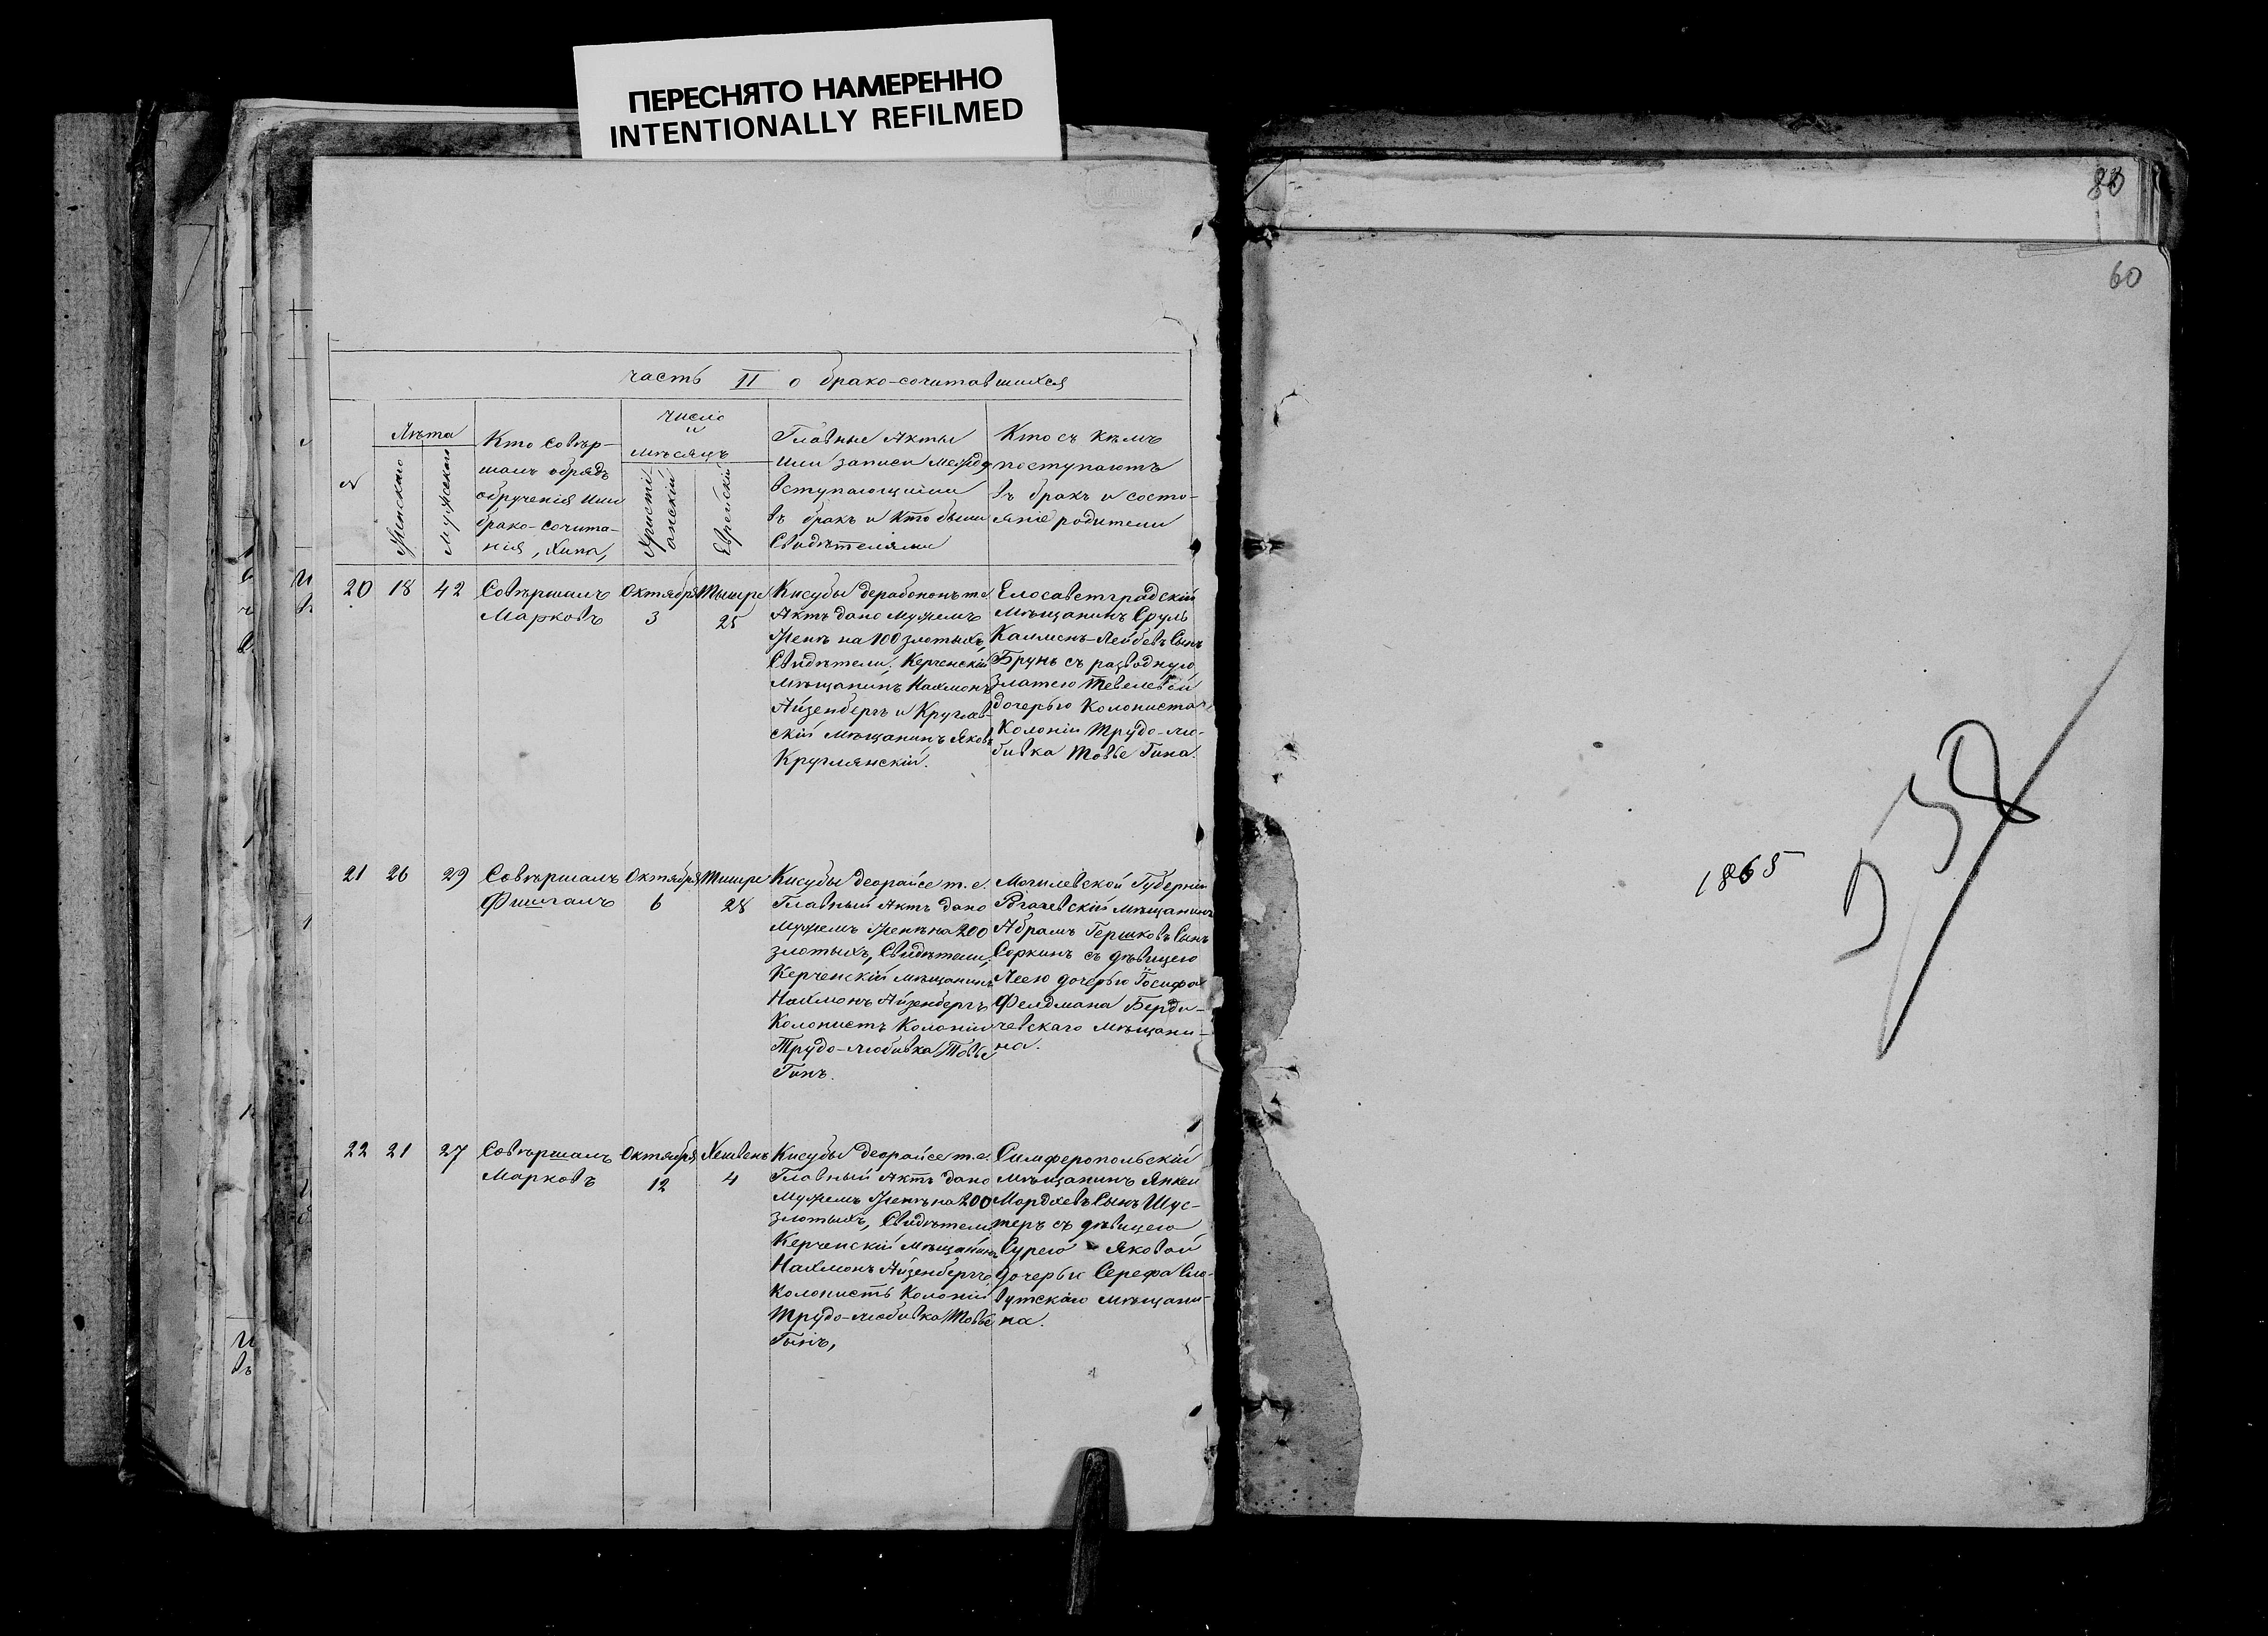 ПЕРЕСНЯТО НАМЕРЕННО
INTENTIONALLY REFILMED
80
60
часть II о брако-сочитавшихся
№
Лѣта
Женскаго
Мужескаго
Кто совѣр-
шалъ обрядъ
обрученія или
брако-сочита-
нія, хипа,
число
и
мѣсяцъ
Христі-
анскій
Еврейскій
Главные Акты
или записи между
вступающими
въ бракъ и кто были
Свидѣтелями
Кто съ кѣмъ
поступаютъ
въ бракъ и состо-
яніе родители
20
18
42
Совѣршалъ
Марковъ
Октября
3
Тышре
25
Кисубы дерабононъ т.е.
Актъ дано мужемъ
Женѣ на 100 злотыхъ,
Свидѣтели: Керченскій
Мѣщанинъ Нахмонъ
Айзенбергъ и Круглов-
скій мѣщанинъ Яковъ
Круглянскій.
Елосаветградскій
Мѣщанинъ Сруль
Калмонъ-Лейбовъ Сынъ
Брунъ съ разводную
Златею Тевелевой
дочерью Колониста
Колоніи Трудо-лю-
бивка Товье Гина.
21
26
29
Совѣршалъ
Фишгалъ
Октября
6
Тишре
28
Кисубы деорайсе т.е.
Главный Актъ дано
мужемъ Женѣ на 200
злотыхъ, Свидѣтели,
Керченскій мѣщанинъ
Нахмонъ Айзенбергъ
Колонистъ Колоніи
Трудо-любивка Товье
Гинъ.
Могилевской Губерніи
Рогачевскій мѣщанинъ
Абрамъ Гершковъ Сынъ
Соркинъ съ дѣвицею
Леею дочерью Іосифа
Фелдмана Берди-
чевскаго мѣщани-
на.
22
21
27
Совѣршалъ
Марковъ
Октября
12
Хешвенъ
4
Кисубы деорайсе т.е.
Главный Актъ дано
мужемъ Женѣ на 200
злотыхъ, Свидѣтели
Керченскій мѣщанинъ
Нахмонъ Айзенбергъ
Колонистъ Колоніи
Трудо-любивка Товье
Гинъ,
Симферопольскій
мѣщанинъ Янкел
Мордхевъ Сынъ Шус-
теръ съ дѣвицею
Сурею Яковой
дочерьи Серефа Сла-
вутскаго мѣщани-
на.
1865